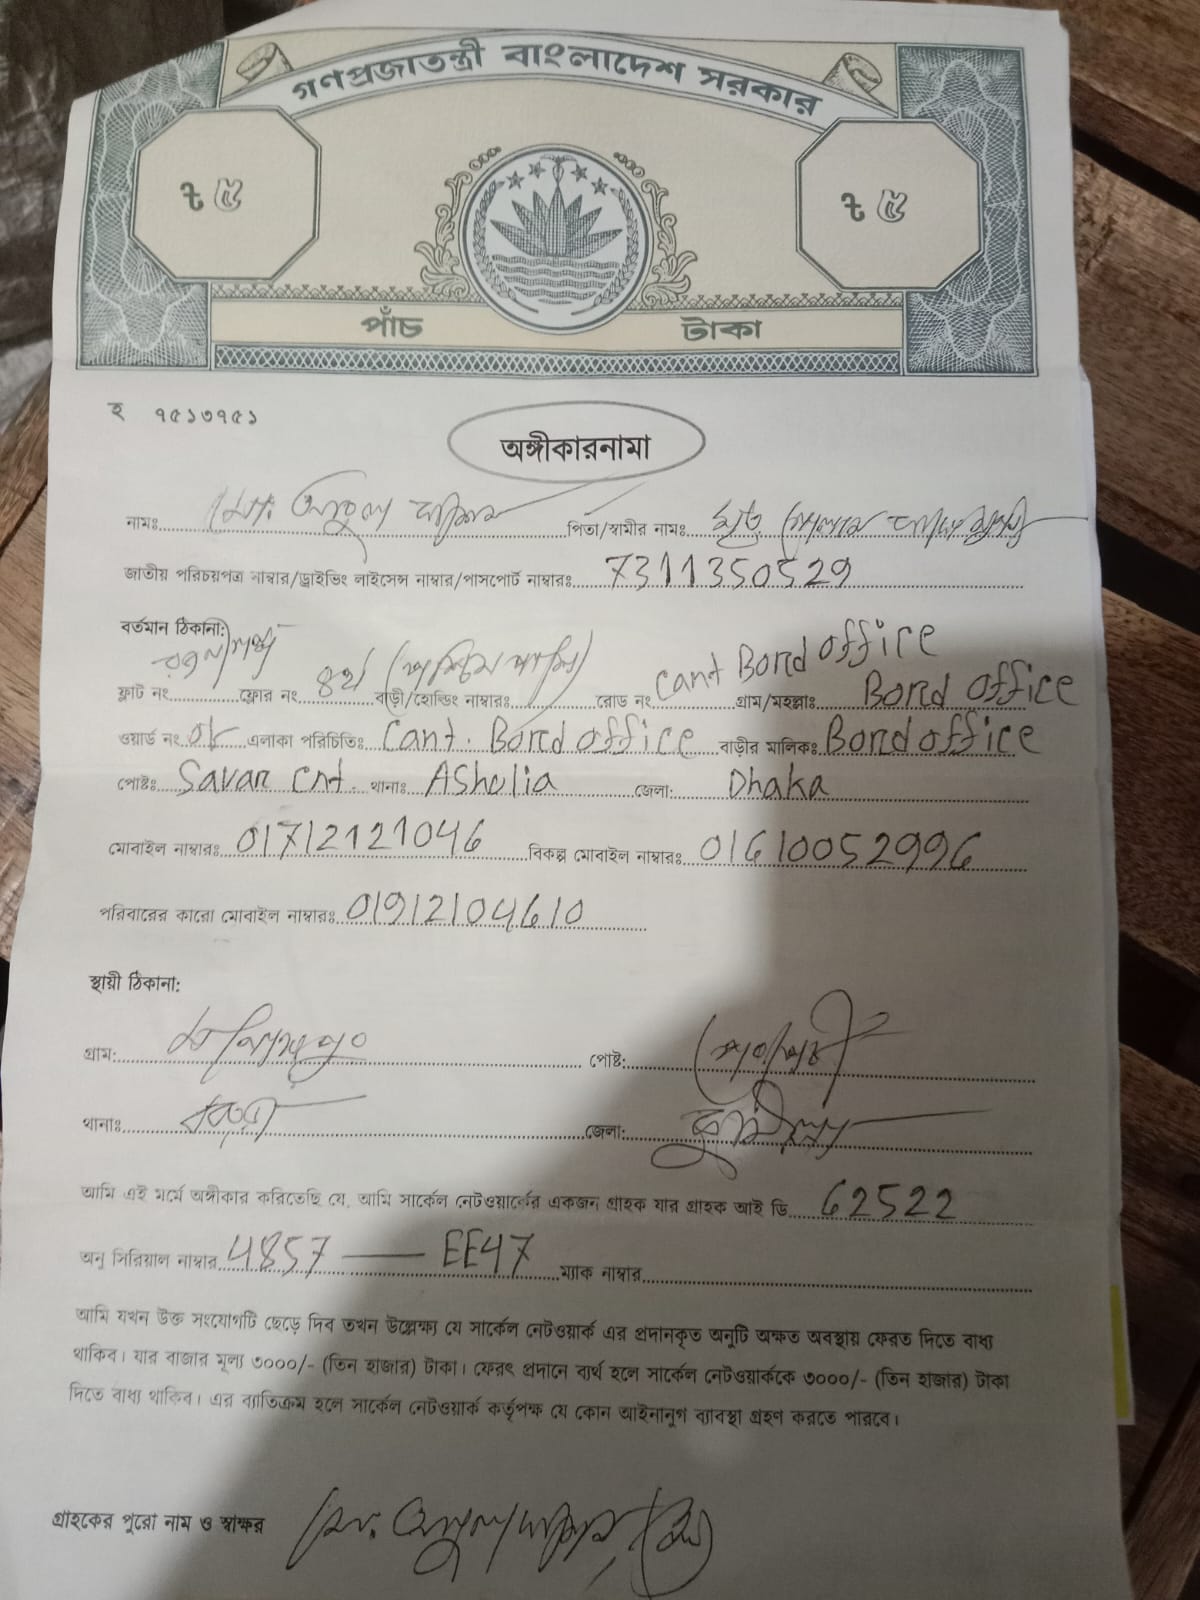 গণপ্রজাতন্ত্রী বাংলাদেশ সরকার
৳ ৫ ৳ ৫
পাঁচ টাকা
হ ৭৫১৩৭৫১
অঙ্গীকারনামা
নামঃ মো: আবুল পিতা/স্বামীর নামঃ মৃত
জাতীয় পরিচয়পত্র নাম্বার/ড্রাইভিং লাইসেন্স নাম্বার/পাসপোর্ট নাম্বারঃ 7311350529
বর্তমান ঠিকানা:
ফ্লাট নং ফ্লোর নং ৪র্থ বাড়ী/হোল্ডিং নাম্বারঃ রোড নং Cant Bord office গ্রাম/মহল্লাঃ Bord office
ওয়ার্ড নং এলাকা পরিচিতিঃ Cant. Bord office বাড়ীর মালিকঃ Bord office
পোষ্টঃ Savar Cnt. থানাঃ AShulia জেলা: Dhaka
মোবাইল নাম্বারঃ 01712121046 বিকল্প মোবাইল নাম্বারঃ 01610052996
পরিবারের কারো মোবাইল নাম্বারঃ 01912104610
স্থায়ী ঠিকানা:
গ্রাম: পোষ্ট:
থানাঃ জেলা:
আমি এই মর্মে অঙ্গীকার করিতেছি যে, আমি সার্কেল নেটওয়ার্কের একজন গ্রাহক যার গ্রাহক আই ডি 62522
অনু সিরিয়াল নাম্বার 4857 — EE47 ম্যাক নাম্বার
আমি যখন উক্ত সংযোগটি ছেড়ে দিব তখন উল্লেক্ষ্য যে সার্কেল নেটওয়ার্ক এর প্রদানকৃত অনুটি অক্ষত অবস্থায় ফেরত দিতে বাধ্য
থাকিব। যার বাজার মূল্য ৩০০০/- (তিন হাজার) টাকা। ফেরৎ প্রদানে ব্যর্থ হলে সার্কেল নেটওয়ার্ককে ৩০০০/- (তিন হাজার) টাকা
দিতে বাধ্য থাকিব। এর ব্যাতিক্রম হলে সার্কেল নেটওয়ার্ক কর্তৃপক্ষ যে কোন আইনানুগ ব্যাবস্থা গ্রহণ করতে পারবে।
গ্রাহকের পুরো নাম ও স্বাক্ষর মো: আবুল